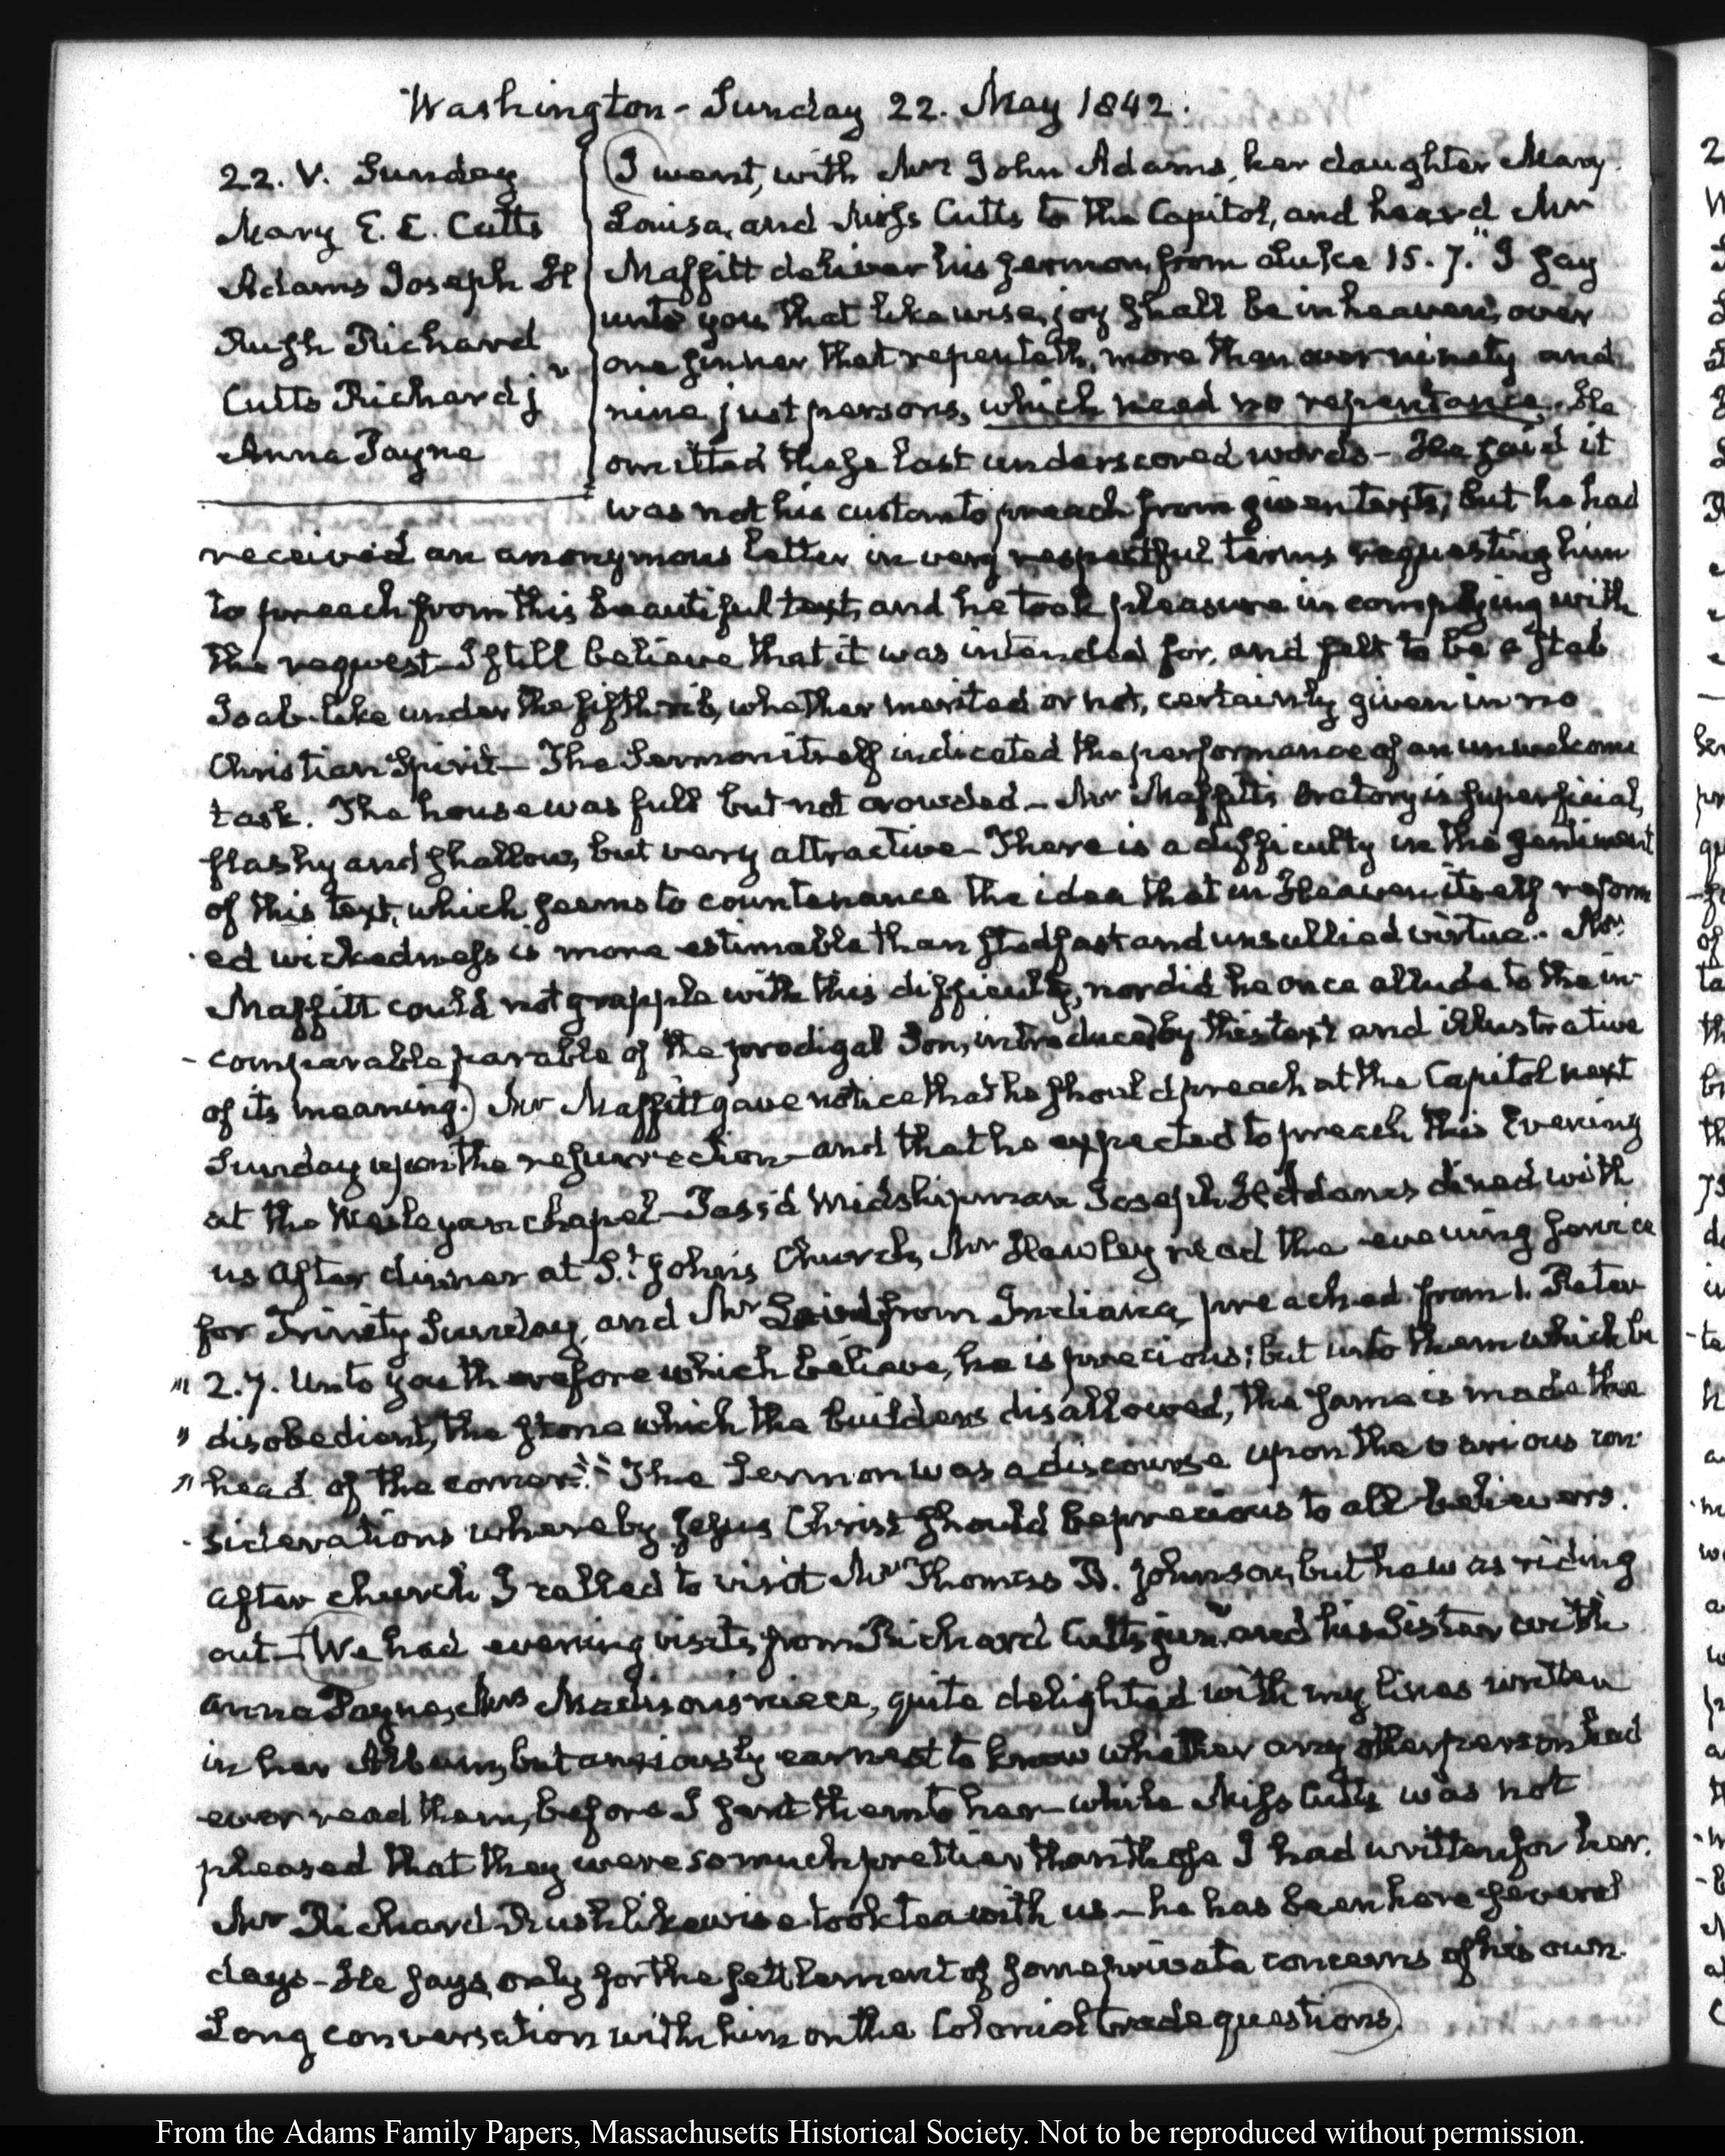 Washington - Sunday 22. May 1842.
22. V. Sunday
Mary E. E. Cutts
Adams Joseph H
Rush Richard
Cutts Richard jr
Anna Payne
I went, with Mrs John Adams, her daughter Mary
Louisa, and Miss Cutts to the Capitol, and heard Mr
Maffitt deliver his sermon, from Luke 15. 7. "I say
unto you, that likewise, joy shall be in heaven, over
one sinner that repenteth, more than over ninety and
nine just persons, which need no repentance. He
omitted these last underscored words - He said it
was not his custom to preach from given texts; but he had
received an anonymous letter in very respectful terms requesting him
to preach from this beautiful text, and he took pleasure in complying with
the request - I still believe that it was intended for, and felt to be a stab
Joab-like under the fifth rib, whether merited or not, certainly given in no
Christian Spirit - The Sermon itself indicated the performance of an unwelcome
task. The house was full but not crowded - Mr Maffitt's Oratory is superficial,
flashy and shallow, but very attractive - There is a difficulty in the sentiment
of this text, which seems to countenance the idea that in Heaven itself reform
ed wickedness is more estimable than stedfast and unsullied virtue. Mr
Maffitt could not grapple with this difficulty, nor did he once allude to the in-
- comparable parable of the prodigal Son, introduced by this text and illustrative
of its meaning.) Mr Maffitt gave notice that he should preach at the Capitol next
Sunday upon the resurrection - and that he expected to preach this Evening
at the Wesleyan chapel - Pass'd Midshipman Joseph H Adams dined with
us After dinner at St. John's Church, Mr Hawley read the evening service
for Trinity Sunday, and Mr from Indiana, preached from 1. Peter
"' 2.7. Unto you therefore which believe, he is precious: but unto them which be
" disobedient, the stone which the builders disallowed, the same is made the
" head of the corner." The Sermon was a discourse upon the various con-
- siderations whereby Jesus Christ should be precious to all believers.
After church I called to visit Mr Thomas B. Johnson, but he was riding
out - (We had evening visits, from Richard Cutts junr. and his Sister with
Anna Payne, Mrs Madison's niece, quite delighted with my lines written
in her Album, but anxiously earnest to know whether any other person had
ever read them, before I sent them to her - while Miss Cutts was not
pleased that they were so much prettier than those I had written for her.
Mr Richard Rush likewise took tea with us - he has been here several
days - He says, only for the settlement of some private concerns of his own.
Long conversation with him on the Colonial trade questions)
From the Adams Family Papers, Massachusetts Historical Society. Not to be reproduced without permission.